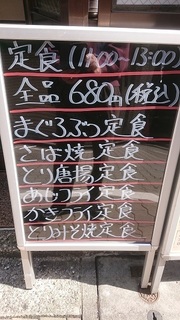 定食(11:00~13:00)
全品680円(税込)
まぐろぶつ定食
さば焼定食
とり唐揚定食
あじフライ定食
かきフライ定食
とりみそ焼定食